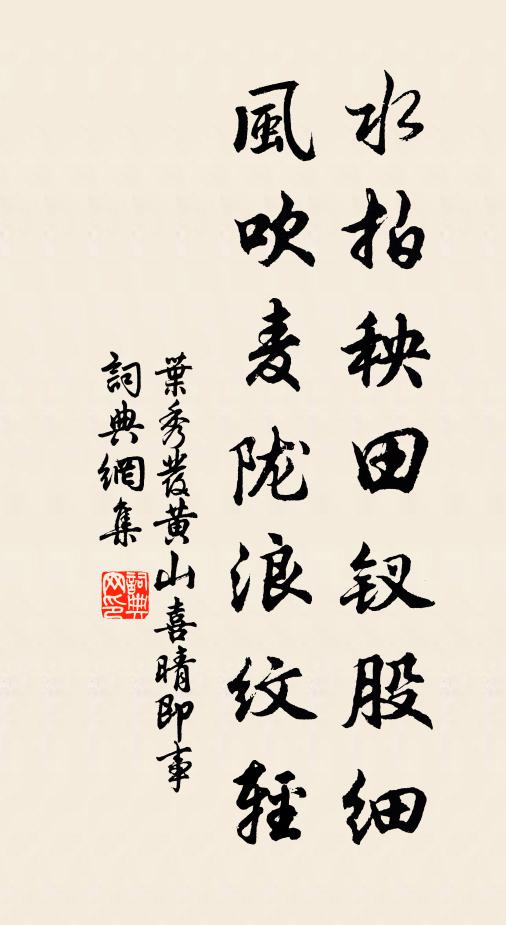 水拍秧田钗股细
風吹麦陇浪纹輕
葉秀發黄山喜晴即事
詞典網集
詞典网印